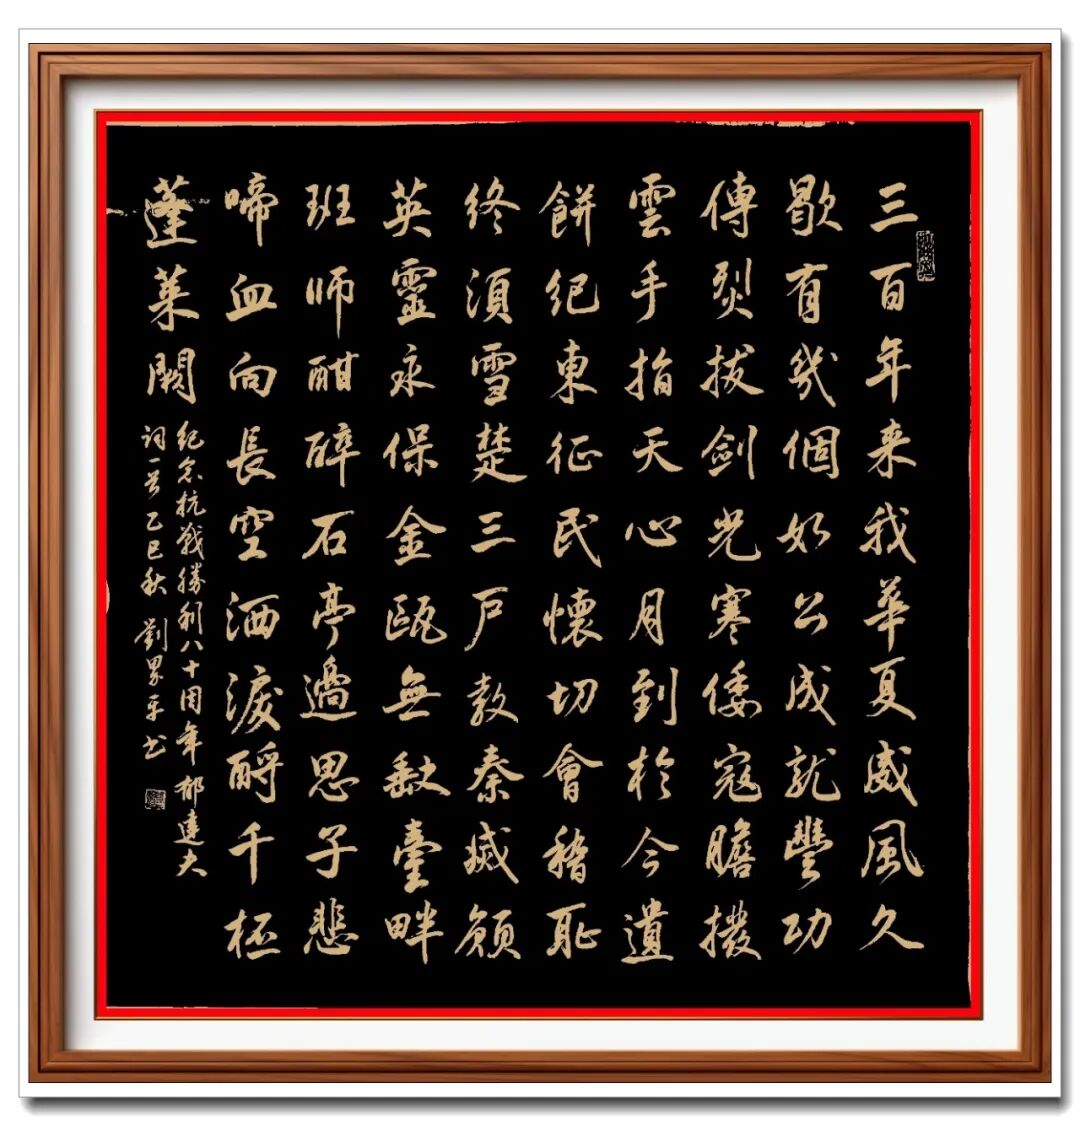 三百年来我華夏威風久
歇有幾個如公成就豐功
傳烈拔劍光寒倭寇膽撥
雲手指天心月到於今遺
餅紀東征民懷切會稽耻
終須雪楚三戶教秦滅願
英靈永保金甌無缺臺畔
班师酣醉石亭邊思子悲
啼血向長空洒淚酹千杯
蓬萊闕
紀念抗戰勝利八十周年郁達夫
词首乙巳秋劉平书